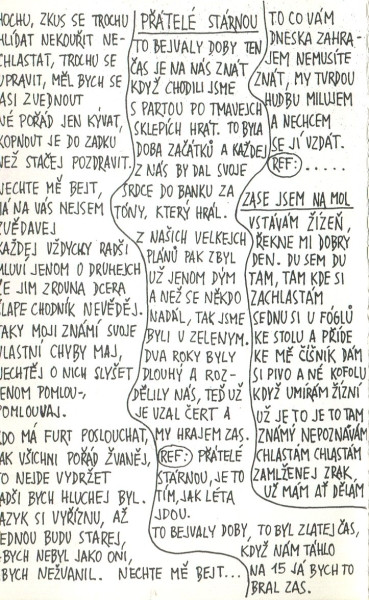 HOCHU, ZKUS SE TROCHU
HLÍDAT NEKOUŘIT NE-
CHLASTAT, TROCHU SE
UPRAVIT, MĚL BYCH SE
ASI ZVEDNOUT
NÉ POŘÁD JEN KÝVAT,
KOPNOUT JE DO ZADKU
NEŽ STAČEJ POZDRAVIT.
NECHTE MĚ BEJT,
JÁ NA VÁS NEJSEM
ZVĚDAVEJ
KAŽDEJ VŽDYCKY RADŠI
MLUVÍ JENOM O DRUHEJCH
ŽE JIM ZROVNA DCERA
ŠLAPE CHODNÍK NEVĚDĚJ.
TAKY MOJI ZNÁMÍ SVOJE
VLASTNÍ CHYBY MAJ,
NECHTĚJ O NICH SLYŠET
JENOM POMLOU-,
POMLOUVAJ.
KDO MÁ FURT POSLOUCHAT,
JAK VŠICHNI POŘÁD ŽVANĚJ,
TO NEJDE VYDRŽET
RADŠI BYCH HLUCHEJ BYL.
JAZYK SI VYŘÍZNU, AŽ
JEDNOU BUDU STAREJ,
-BYCH NEBYL JAKO ONI,
-BYCH NEŽVANIL. NECHTE MĚ BEJT...
PŘÁTELÉ STÁRNOU
TO BEJVALY DOBY TEN
ČAS JE NA NÁS ZNÁT
KDYŽ CHODILI JSME
S PARTOU PO TMAVEJCH
SKLEPÍCH HRÁT. TO BYLA
DOBA ZAČÁTKŮ A KAŽDEJ
Z NÁS BY DAL SVOJE
SRDCE DO BANKU ZA
TÓNY, KTERÝ HRÁL.
Z NAŠICH VELKEJCH
PLÁNŮ PAK ZBYL
UŽ JENOM DÝM
A NEŽ SE NĚKDO
NADÁL, TAK JSME
BYLI V ZELENYM.
DVA ROKY BYLY
DLOUHÝ A ROZ-
DĚLILY NÁS, TEĎ UŽ
JE VZAL ČERT A
MY HRAJEM ZAS.
REF: PŘÁTELÉ
STÁRNOU, JE TO
TÍM, JAK LÉTA
JDOU.
TO BEJVALY DOBY, TO BYL ZLATEJ ČAS,
KDYŽ NÁM TÁHLO
NA 15 JÁ BYCH TO
BRAL ZAS.
TO CO VÁM
DNESKA ZAHRA-
JEM NEMUSÍTE
ZNÁT, MY TVRDOU
HUDBU MILUJEM
A NECHCEM
SE JÍ VZDÁT.
REF: .....
ZASE JSEM NA MOL
VSTÁVÁM ŽÍZEŇ,
ŘEKNE MI DOBRY
DEN. DU SEM DU
TAM, TAM KDE SI
ZACHLASTÁM
SEDNU SI U FÓGLŮ
KE STOLU A PŘÍDE
KE MĚ ČÍŠNIK DÁM
SI PIVO A NÉ KOFOLU
KDYŽ UMÍRÁM ŽÍZNÍ
UŽ JE TO JE TO TAM
ZNÁMÝ NEPOZNÁVÁM
CHLASTÁM CHLASTÁM
ZAMLŽENEJ ZRAK,
UŽ MÁM AŤ DĚLÁM